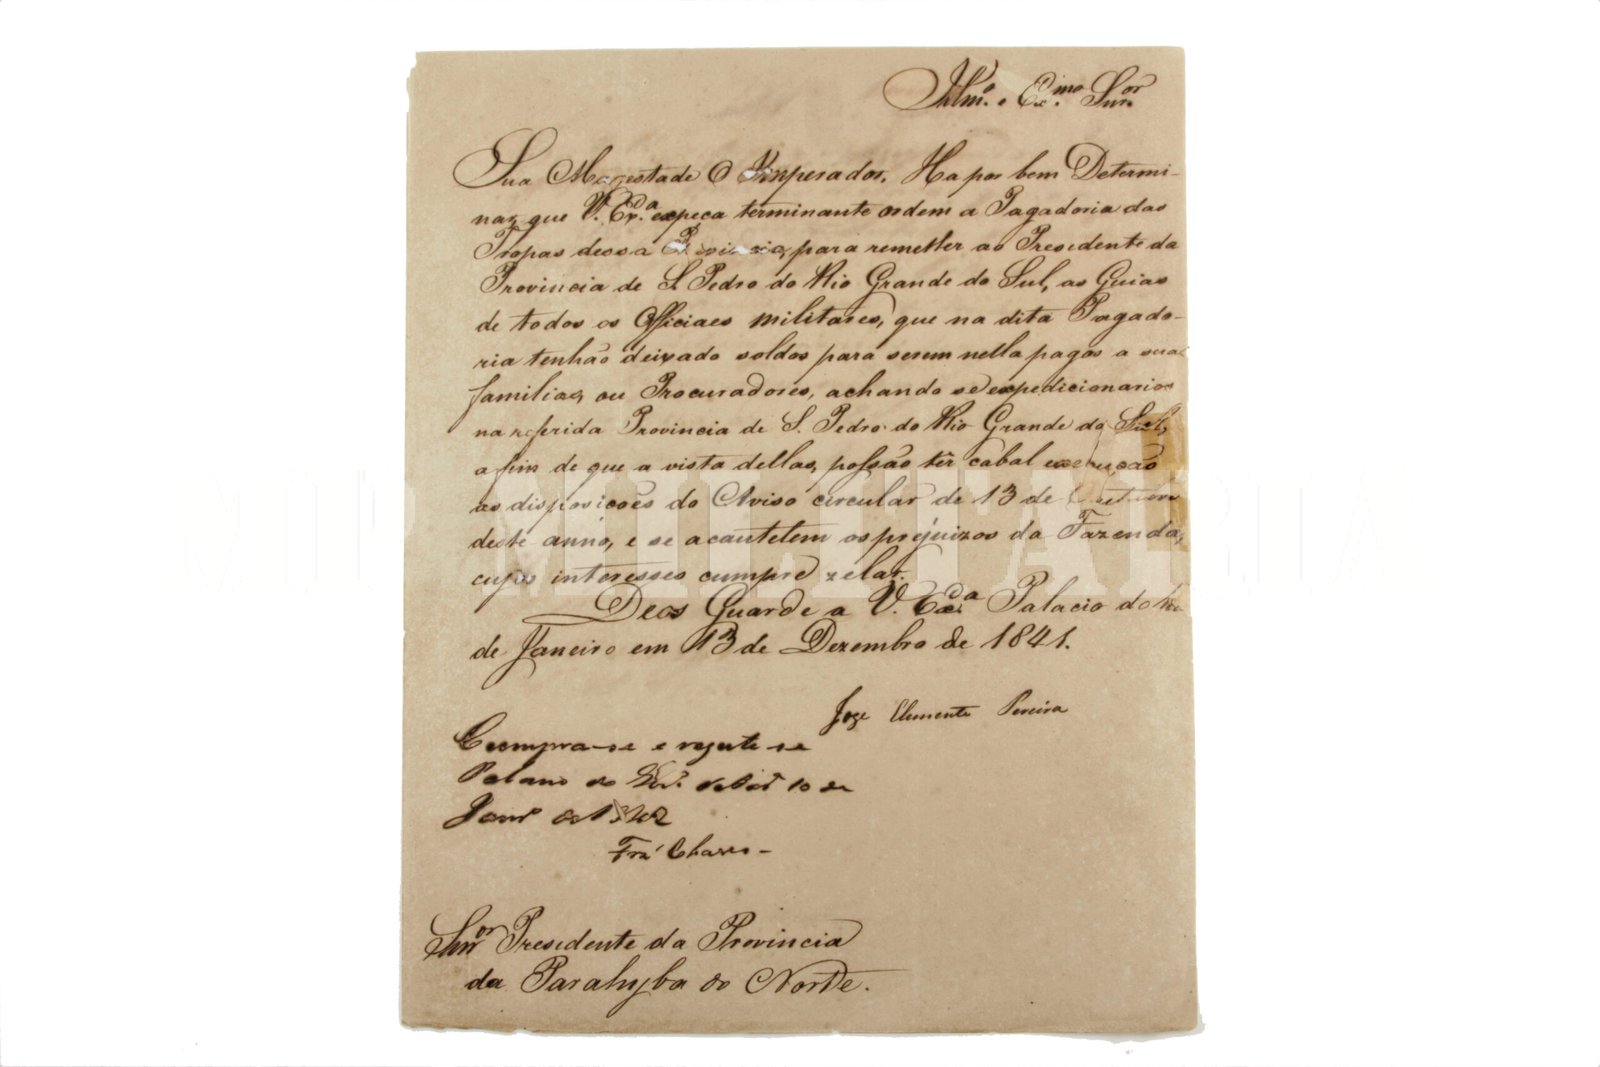 Illmo. e Exmo. Snr.
Sua Magestade O Imperador, Ha por bem Determi-
nar que V. Exa. expeça terminante ordem a Pagadoria das
Tropas dessa Provincia, para remetter ao Presidente da
Provincia de S. Pedro do Rio Grande do Sul, as Guias
de todos os Officiaes militares, que na dita Pagado-
ria tenhão deixado soldos para serem nella pagos a suas
familias, ou Procuradores, achando se expedicionarios
na referida Provincia de S. Pedro do Rio Grande do Sul,
afim de que a vista dellas, possão têr cabal execução
as disposicoẽs do Aviso circular de 13 de Outubro
deste anno, e se acautelem os prejuizos da Fazenda,
cujos interesses cumpre zelar.
Deos Guarde a V. Exa. Palacio do Rio
de Janeiro em 13 de Dezembro de 1841.
Joze Clemente Pereira
Cumpra-se e registe-se
Palacio do 10 de
Janro. de 1842
Chaves -
Snr. Presidente da Provincia
da Parahyba do Norte.